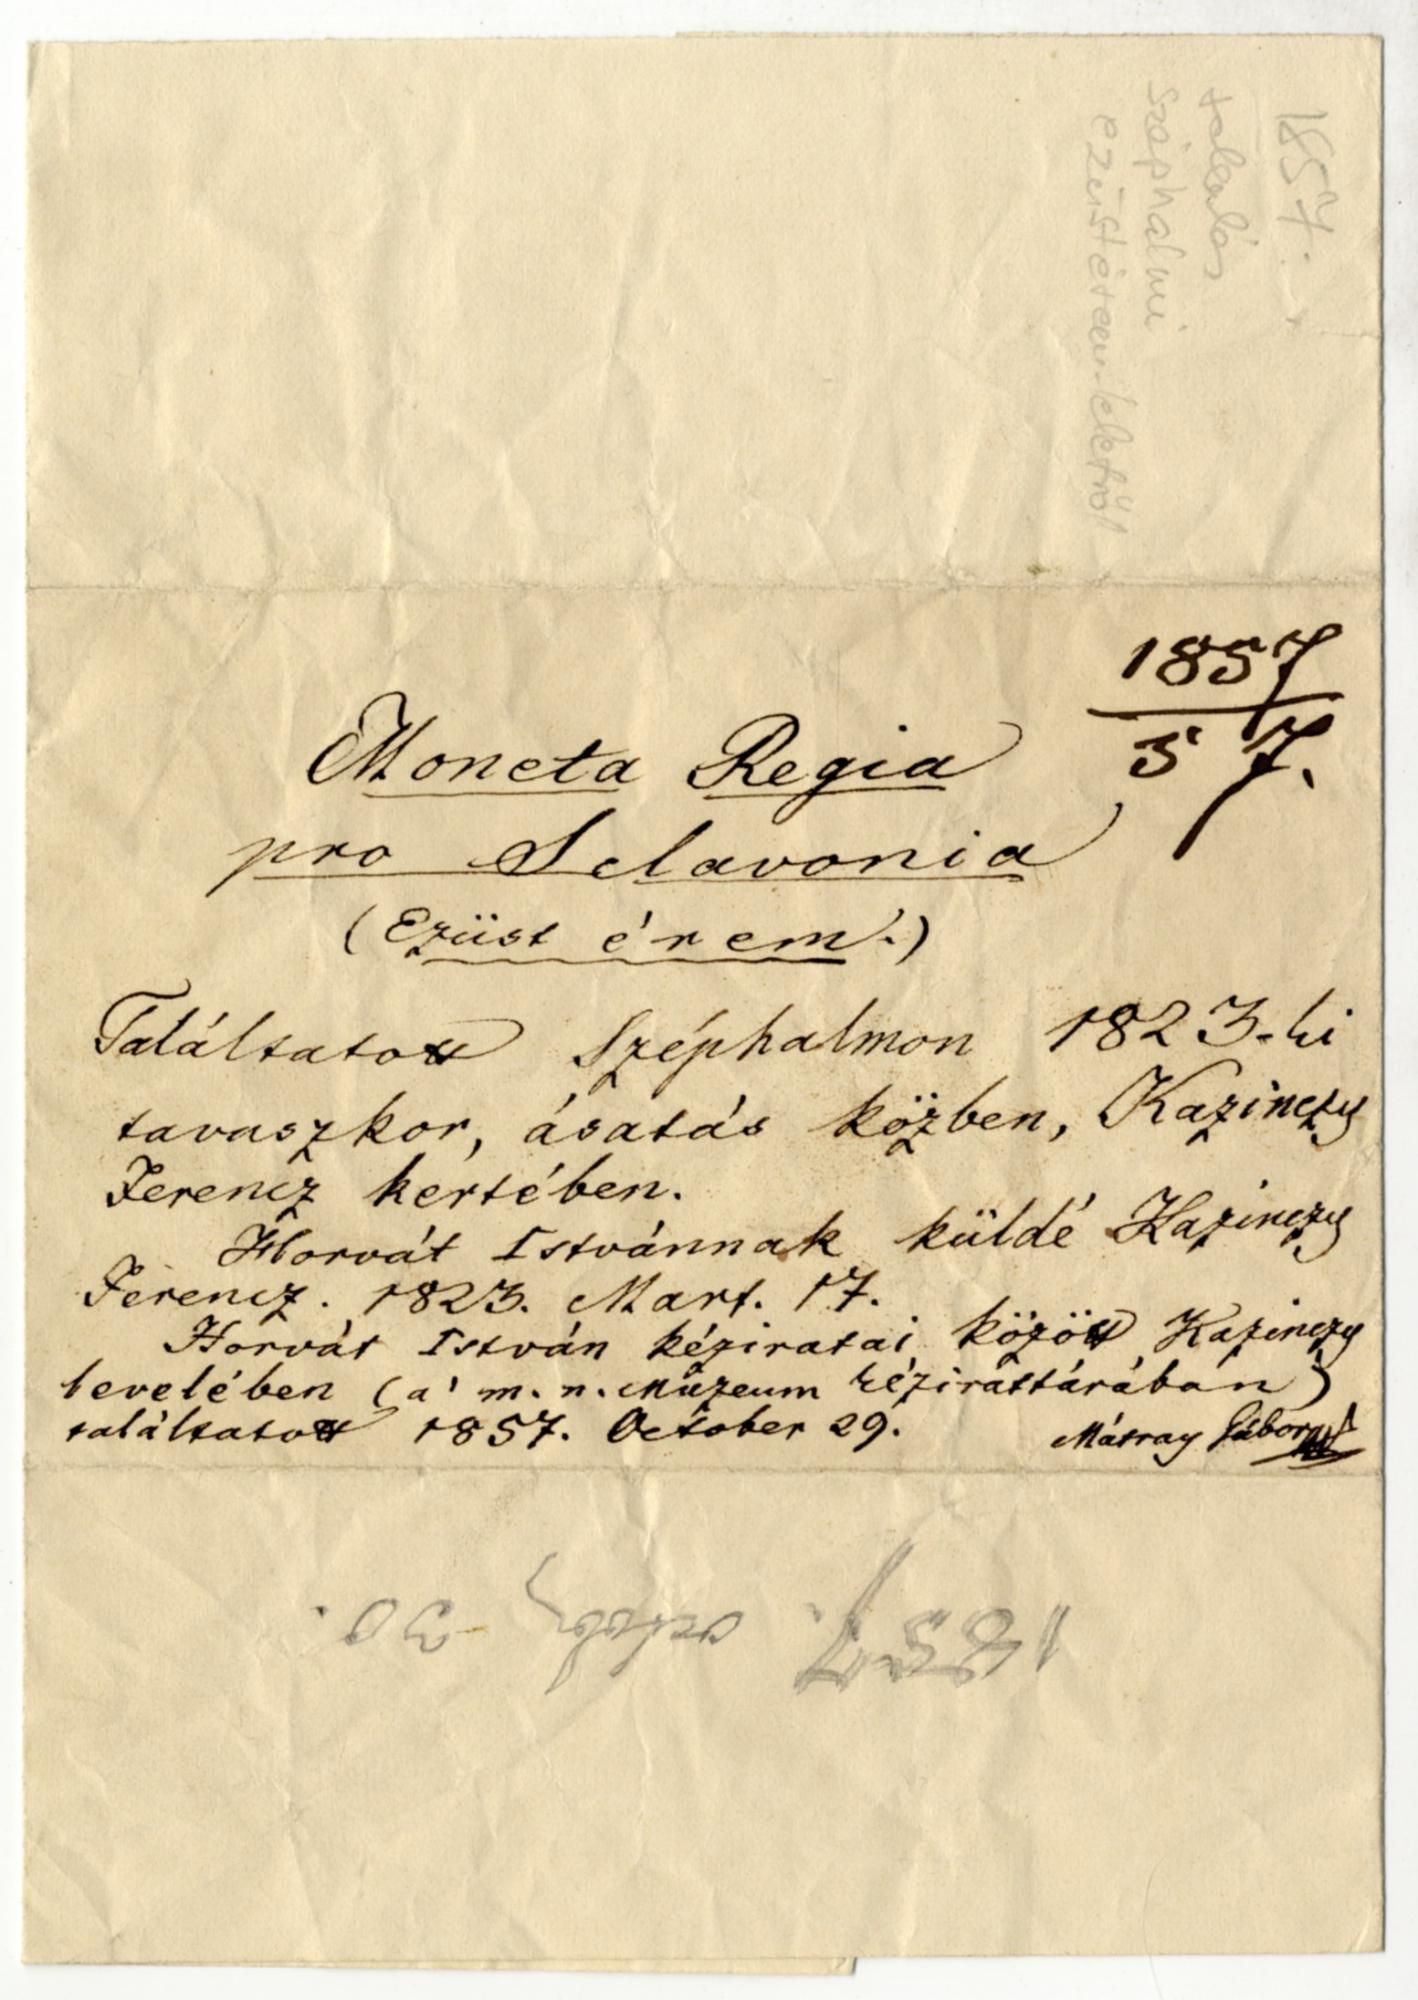 1857.
találás
széphalmi
ezüstéremleletről
1857
57.
Moneta Regia
pro Sclavonia
(Ezüst érem.)
Találtatott Széphalmon 1823-ki
tavaszkor, ásatás közben, Kazinczy
Ferencz kertében.
Horvát Istvánnak küldé Kazinczy
Ferencz. 1823. Mart. 17.
Horvát István kéziratai között Kazinczy
levelében (a' m. n. Múzeum kézirattárában)
találtatott 1857. October 29.
Mátray Gábor
1857. 30.